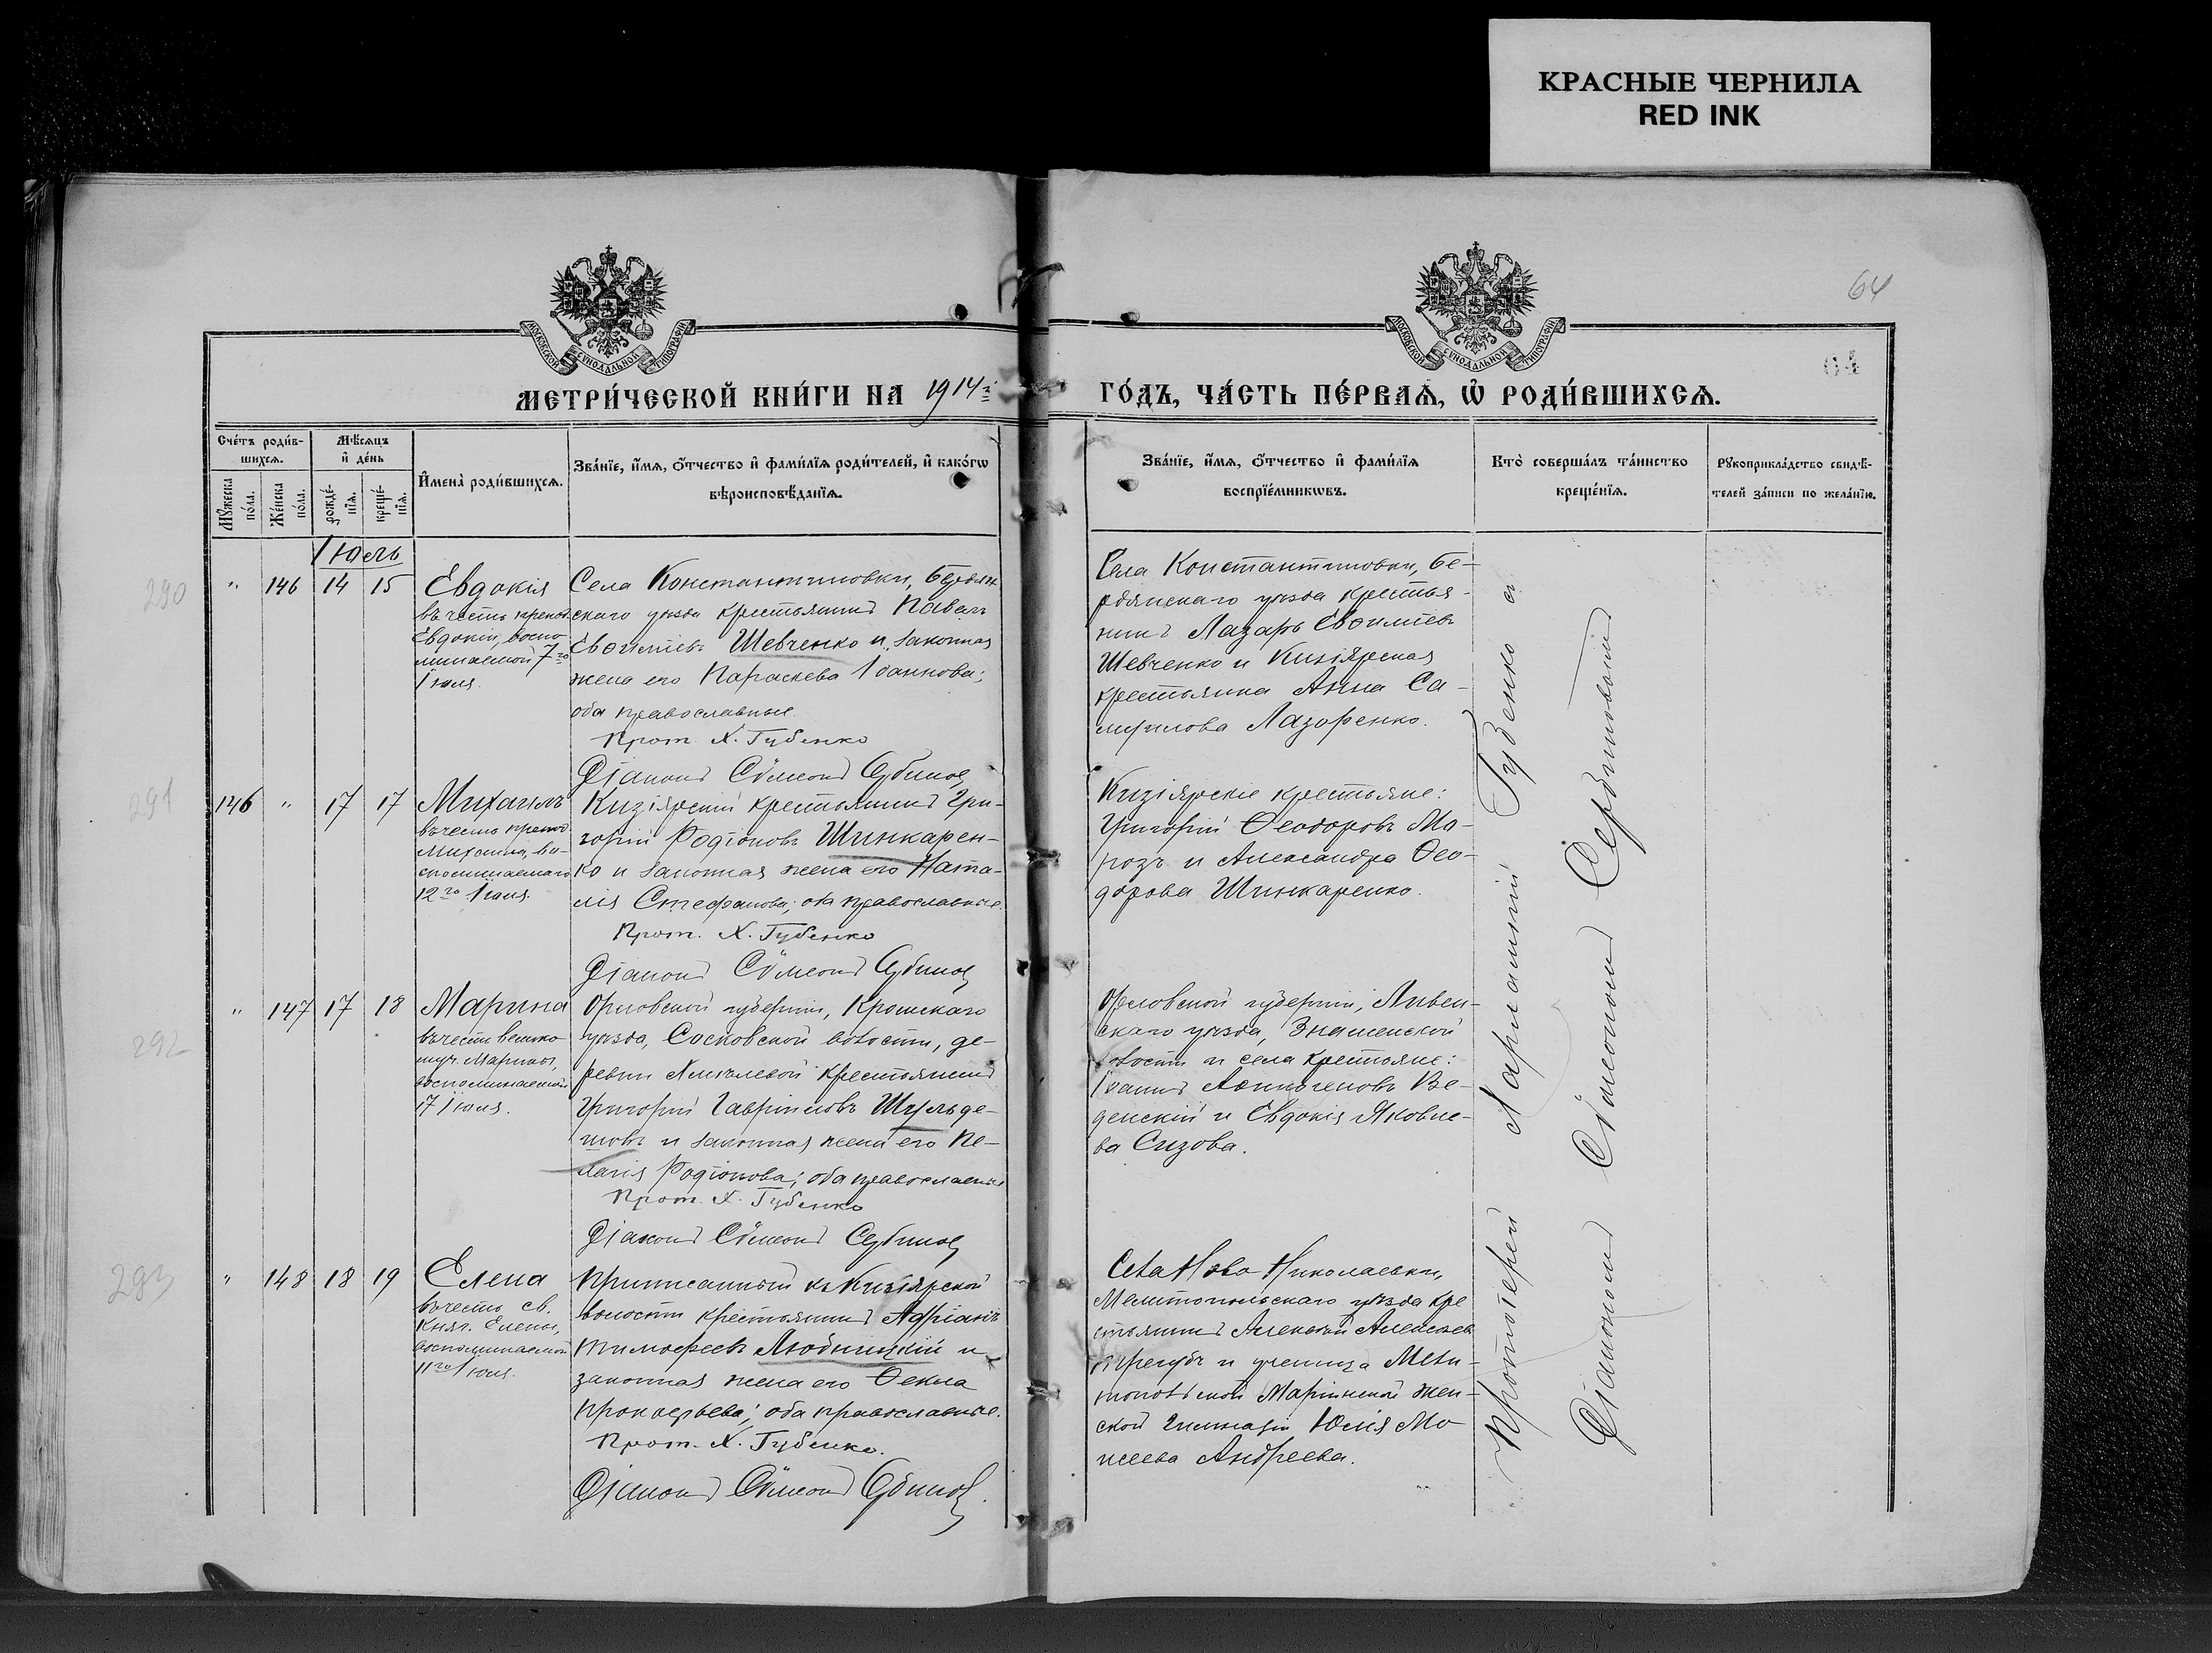 КРАСНЫЕ ЧЕРНИЛА
RED INK
64
64
МОСКОВСКОЙ СѴНОДАЛЬНОЙ ТИПОГРАФІИ
МОСКОВСКОЙ СѴНОДАЛЬНОЙ ТИПОГРАФІИ
МЕТРИ́ЧЕСКОЙ КНИ́ГИ НА 1914 г.
ГО́ДЪ, ЧА́СТЬ ПЕ́РВАѦ, Ѡ҆ РОДИ́ВШИХСѦ.
Сче́тъ роди́в-
шихсѧ.
Мѣ́сѧцъ
и҆ де́нь
Мꙋ́жеска
по́ла.
Же́нска
по́ла.
рожде́-
нїѧ.
креще́-
нїѧ.
И҆мена̀ роди́вшихсѧ.
Зва́нїе, и҆́мѧ, ѻ҆́тчество и҆ фами́лїѧ роди́телей, и҆ како́гѡ
вѣроисповѣ́данїѧ.
Зва́нїе, и҆́мѧ, ѻ҆́тчество и҆ фами́лїѧ
воспрїе́мникѡвъ.
Кто̀ соверша́лъ та́инство
креще́нїѧ.
Рꙋкоприкла́дство свидѣ́-
телей за́писи по жела́нїю.
Іюль
290
" 146 14 15
Евдокія
въ честь препод.
Евдокіи, воспо-
минаемой 7го
Іюля.
Села Константиновки, Бердян-
скаго уѣзда крестьянинъ Павелъ
Евѳиміевъ Шевченко и законная
жена его Параскева Іоаннова;
оба православные.
Прот. Х. Губенко
Діаконъ Сѵмеонъ
Села Константиновки, Бе-
рдянскаго уѣзда крестья-
нинъ Лазарь Евѳиміевъ
Шевченко и Кизіярская
крестьянка Анна Са-
муилова Лазаренко.
291
146 " 17 17
Михаилъ
въ честь препод.
Михаила, во-
споминаемаго
12го Іюля.
Кизіярскій крестьянинъ Гри-
горій Родіоновъ Шинкарен-
ко и законная жена его Ната-
лія Стефанова; оба православные.
Прот. Х. Губенко
Діаконъ Сѵмеонъ
Кизіярскіе крестьяне:
Григорій Ѳеодоровъ Мо-
розъ и Александра Ѳео-
дорова Шинкаренко.
292
" 147 17 18
Марина
въ честь велико-
муч. Марины,
воспоминаемой
17 Іюля.
Орловской губерніи, Кромскаго
уѣзда, Сосковской волости, де-
ревни крестьянинъ
Григорій Гавріиловъ Шульде-
шовъ и законная жена его Пе-
лагія Родіонова; оба православные
Прот. Х. Губенко
Діаконъ Сѵмеонъ
Орловской губерніи, Ливен-
скаго уѣзда, Знаменской
волости и села крестьяне:
Іоаннъ Ве-
денскій и Евдокія Яковле-
ва Сизова.
293
" 148 18 19
Елена
въ честь св.
Княг. Елены,
воспоминаемой
11го Іюля.
Приписанный къ Кизіярской
волости крестьянинъ Адріанъ
Тимофеевъ Любицкій и
законная жена его Ѳекла
Прокофьева; оба православные.
Прот. Х. Губенко.
Діаконъ Сѵмеонъ
Села Ново-Николаевки,
Мелитопольскаго уѣзда кре
стьянинъ Алексѣй Алексѣевъ
и ученица Мели-
топольской Маріинской жен-
ской гимназіи Юлія Мо
исеева Андреева.
Протоіерей Харлампій Губенко съ
Діакономъ Сѵмеономъ